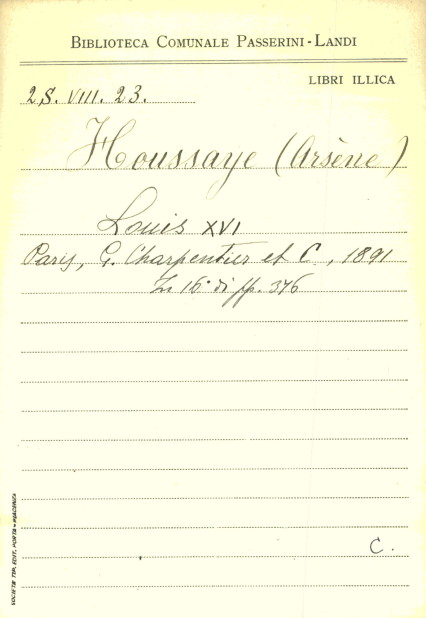 BIBLIOTECA COMUNALE PASSERINI-LANDI
LIBRI ILLICA
2S. VIII. 23.
Houssaye (Arsène)
Louis XVI
Paris, G. Charpentier et C, 1891
In 16° di pp. 376
C.
SOCIETÀ TIP. EDIT. PORTA - PIACENZA